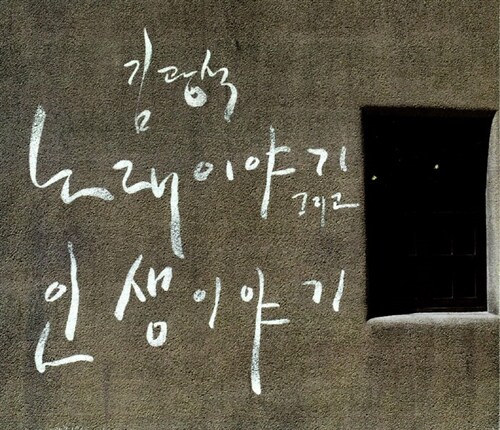 김광석
노래이야기
그리고
인생이야기